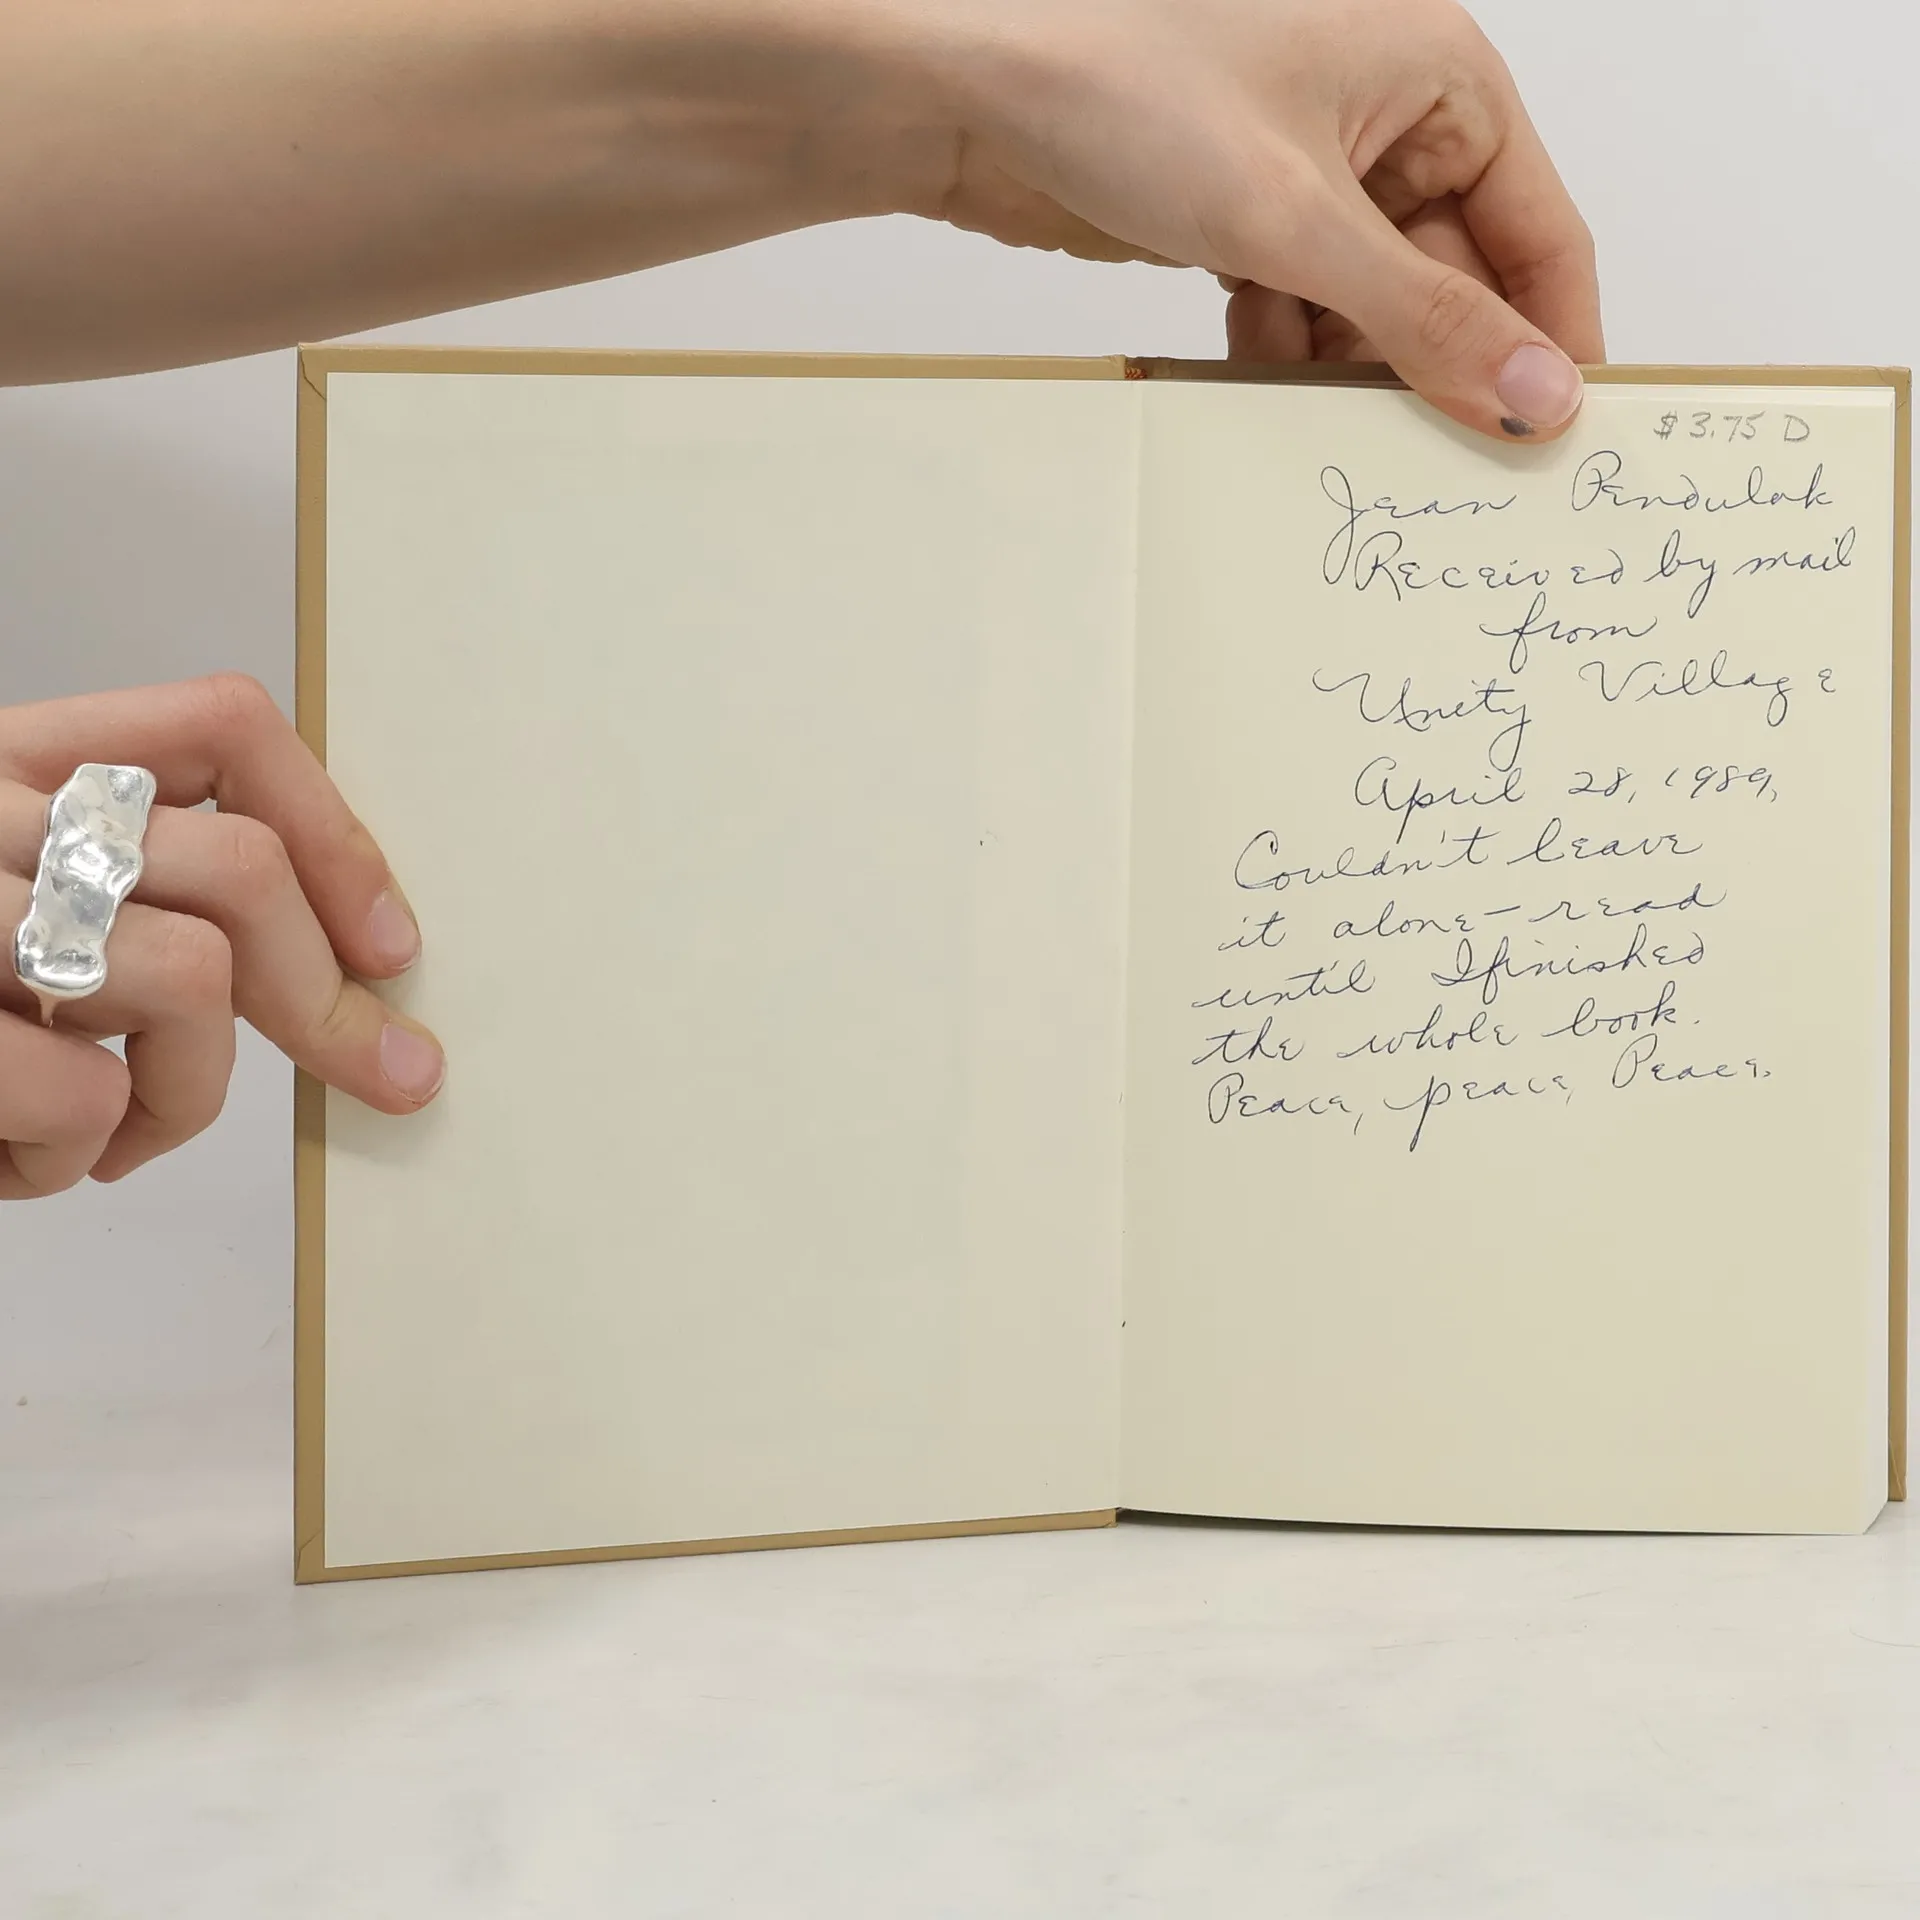 $3.75 D
Jean Pendulak
Received by mail
from
Unity Village
April 28, 1989,
Couldn't leave
it alone — read
until I finished
the whole book.
Peace, peace, Peace.